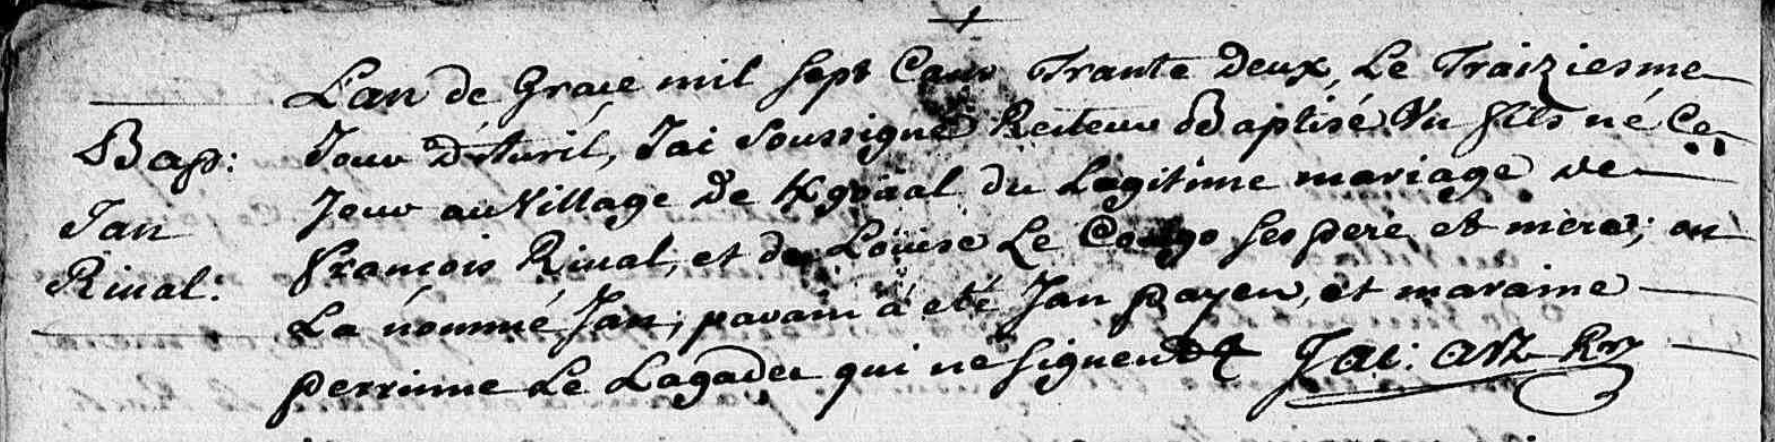 L'an de Grace mil sept Cens Trante Deux, Le Traiziesme
Bap: Jour D'Avril, Jai Soussigné Recteur Baptisé Un fils né Ce
Jour au Village De du Lagitime mariage de
Jan
François Rival, et de Louise Le ses pere et mere; on
Rival:
La nommé Jan; parain à eté Jan payen, et maraine
perrinne Le Lagadec qui ne signent Jac: arz Rr